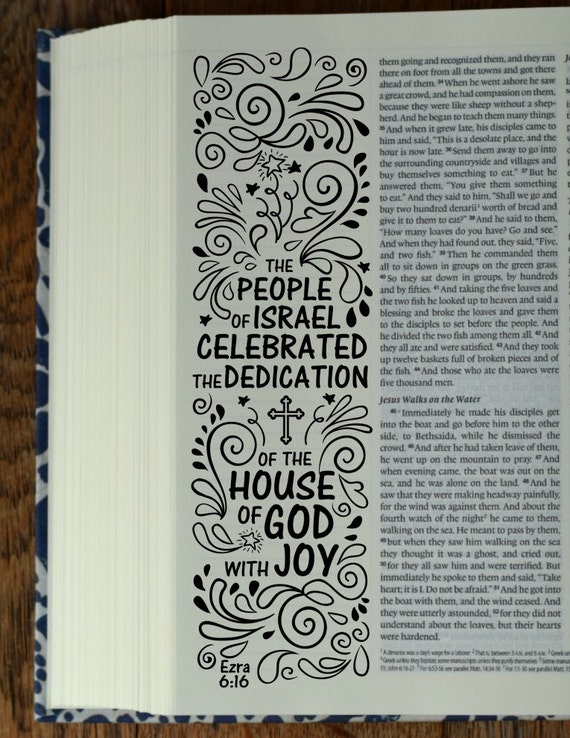 THE
PEOPLE
OF ISRAEL
CELEBRATED
THE DEDICATION
OF THE
HOUSE
OF GOD
WITH JOY
Ezra
6:16
them going and recognized them, and they ran
there on foot from all the towns and got there
ahead of them. 34 When he went ashore he saw
a great crowd, and he had compassion on them,
because they were like sheep without a shep-
herd. And he began to teach them many things.
35 And when it grew late, his disciples came to
him and said, "This is a desolate place, and the
hour is now late. 36 Send them away to go into
the surrounding countryside and villages and
buy themselves something to eat." 37 But he
answered them, "You give them something
to eat." And they said to him, "Shall we go and
buy two hundred denarii1 worth of bread and
give it to them to eat?" 38 And he said to them,
"How many loaves do you have? Go and see."
And when they had found out, they said, "Five,
and two fish." 39 Then he commanded them
all to sit down in groups on the green grass.
40 So they sat down in groups, by hundreds
and by fifties. 41 And taking the five loaves and
the two fish he looked up to heaven and said a
blessing and broke the loaves and gave them
to the disciples to set before the people. And
he divided the two fish among them all. 42 And
they all ate and were satisfied. 43 And they took
up twelve baskets full of broken pieces and of
the fish. 44 And those who ate the loaves were
five thousand men.
Jesus Walks on the Water
45 Immediately he made his disciples get
into the boat and go before him to the other
side, to Bethsaida, while he dismissed the
crowd. 46 And after he had taken leave of them,
he went up on the mountain to pray. 47 And
when evening came, the boat was out on the
sea, and he was alone on the land. 48 And he
saw that they were making headway painfully,
for the wind was against them. And about the
fourth watch of the night2 he came to them,
walking on the sea. He meant to pass by them,
49 but when they saw him walking on the sea
they thought it was a ghost, and cried out,
50 for they all saw him and were terrified. But
immediately he spoke to them and said, "Take
heart; it is I. Do not be afraid." 51 And he got into
the boat with them, and the wind ceased. And
they were utterly astounded, 52 for they did not
understand about the loaves, but their hearts
were hardened.
1 A denarius was a day's wage for a laborer 2 That is, between 3 A.M. and 6 A.M.